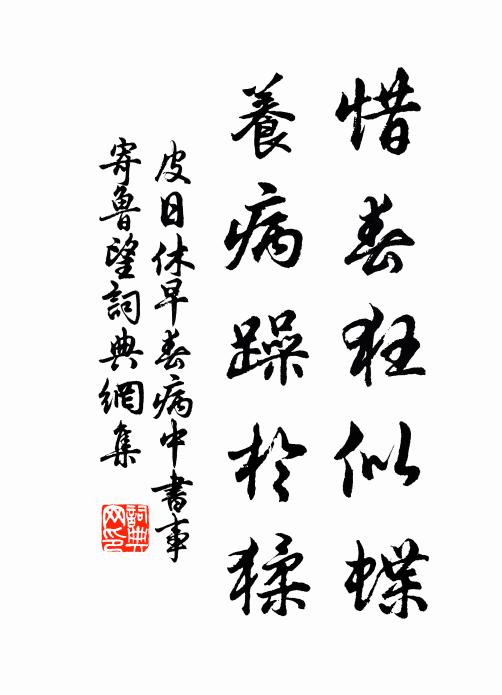 惜春狂似蝶
養病躁於猱
皮日休早春病中書事
寄魯望詞典網集
詞典
网印